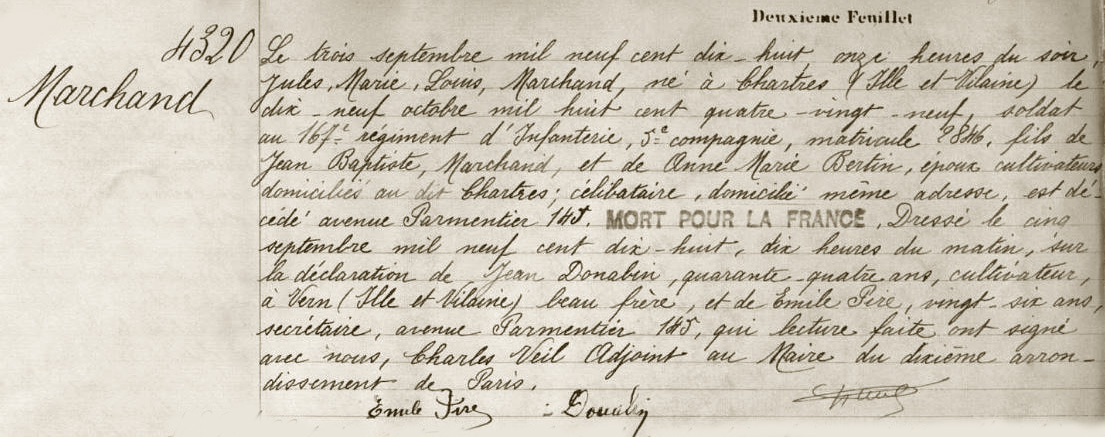 Deuxième Feuillet
4320
Marchand
Le trois septembre mil neuf cent dix-huit onze heures du soir,
Jules, Marie, Louis, Marchand, né à Chartres (Ille et Vilaine) le
dix-neuf octobre mil huit cent quatre-vingt-neuf, soldat
au 167e régiment d'Infanterie, 5e compagnie, matricule 8846, fils de
Jean Baptiste, Marchand, et de Anne Marie Bertin, époux cultivateurs
domiciliés au dit Chartres; célibataire, domicilié même adresse, est dé-
cédé avenue Parmentier 145. MORT POUR LA FRANCE. Dressé le cinq
septembre mil neuf cent dix-huit, dix heures du matin, sur
la déclaration de Jean Donabin, quarante-quatre ans, cultivateur,
à Vern (Ille et Vilaine) beau frère, et de Emile Pire, vingt-six ans,
secrétaire, avenue Parmentier 145, qui lecture faite ont signé
avec nous, Charles Veil Adjoint au Maire du dixième arron-
dissement de Paris.
Emile Pire Donabin